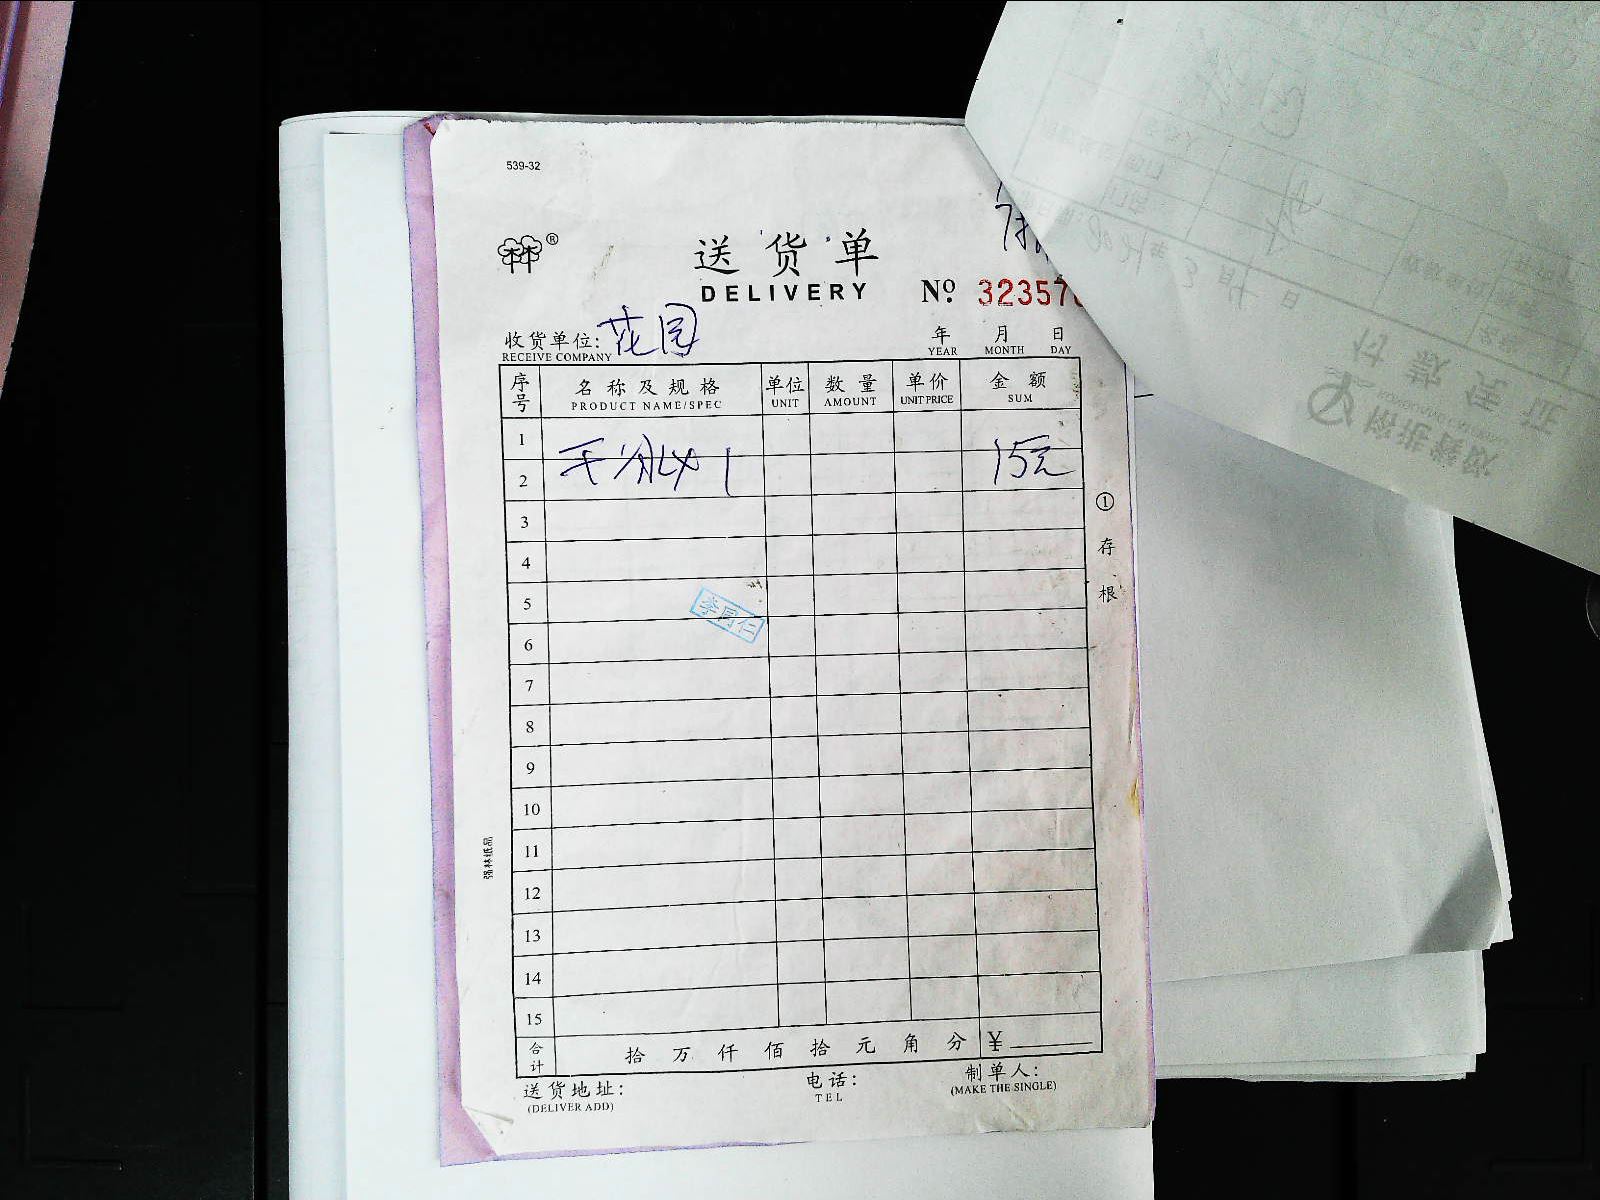 539-32
林林®
送货单
DELIVERY
№ 32357
收货单位: 花园
RECEIVE COMPANY
年 月 日
YEAR MONTH DAY
序号 名称及规格 单位 数量 单价 金额
PRODUCT NAME/SPEC UNIT AMOUNT UNIT PRICE SUM
1
2 千分 1 15元
3
4
5
李同仁
6
7
8
9
10
11
12
13
14
15
合计 拾 万 仟 佰 拾 元 角 分 ¥
送货地址: 电话: 制单人:
(DELIVER ADD) TEL (MAKE THE SINGLE)
① 存根
强林纸品